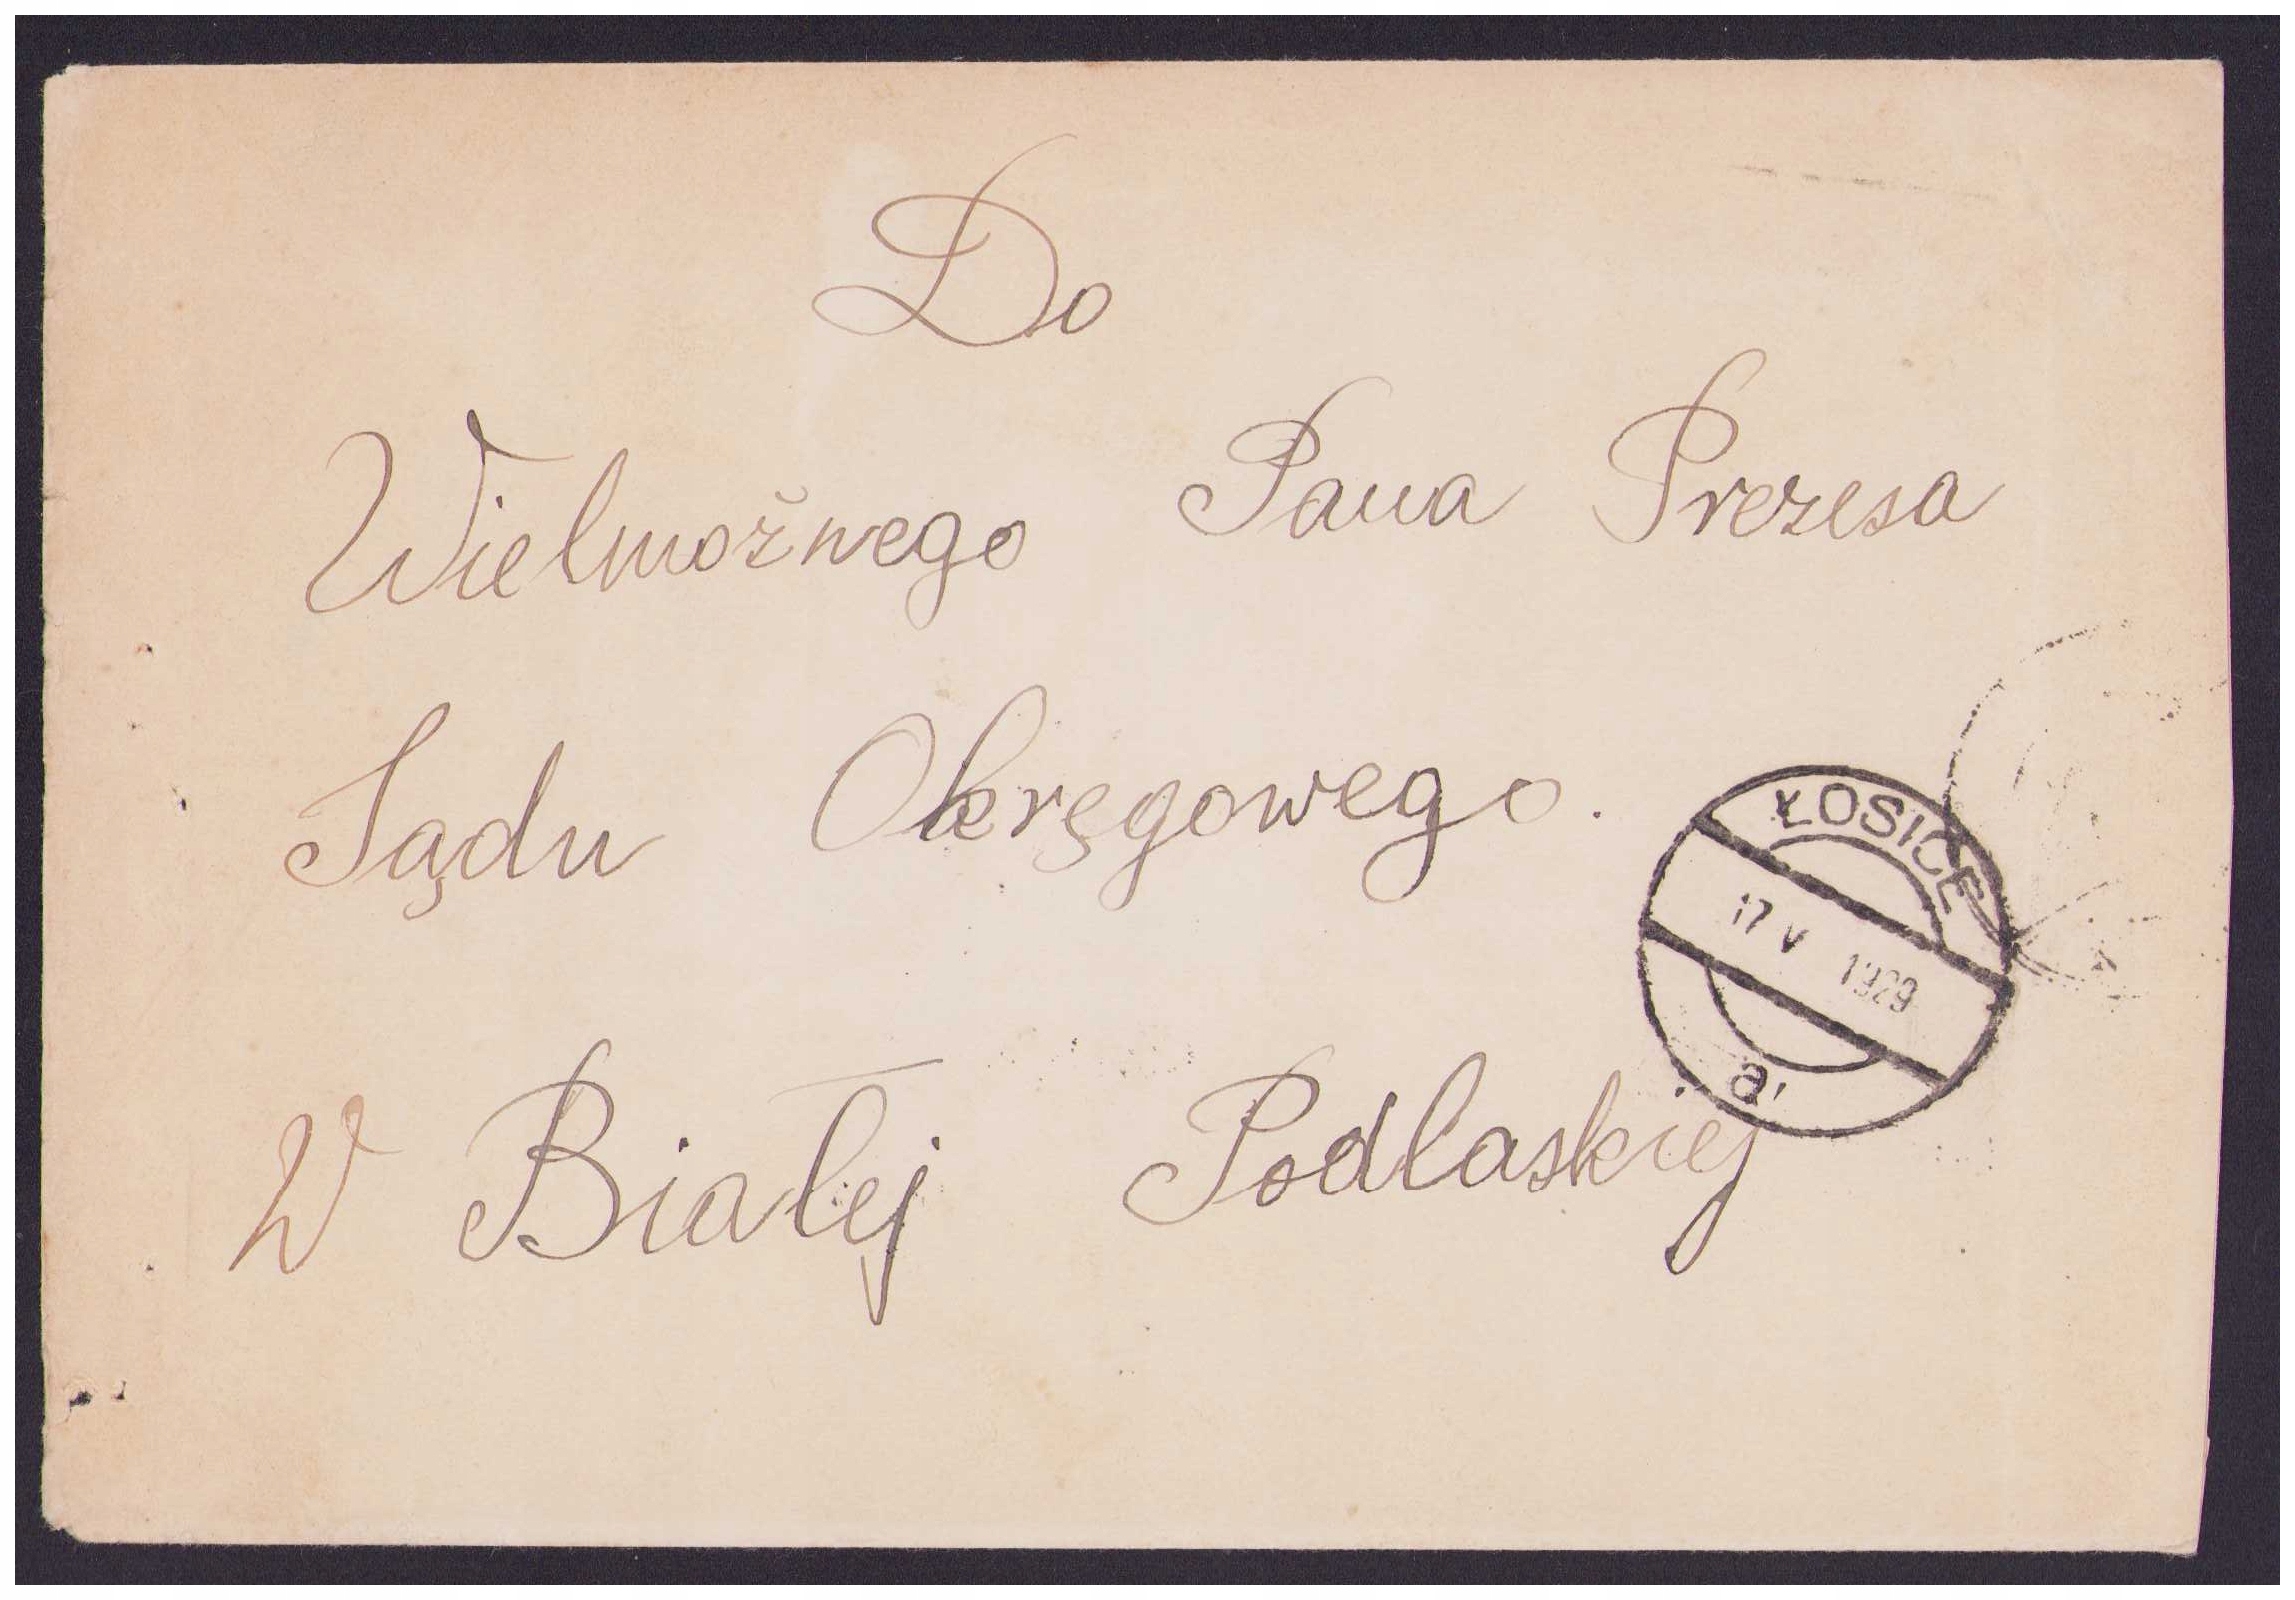 Do
Wielmożnego Pana Prezesa
Sądu Okręgowego.
W Białej Podlaskiej
ŁOSICE
17 V 1929
a